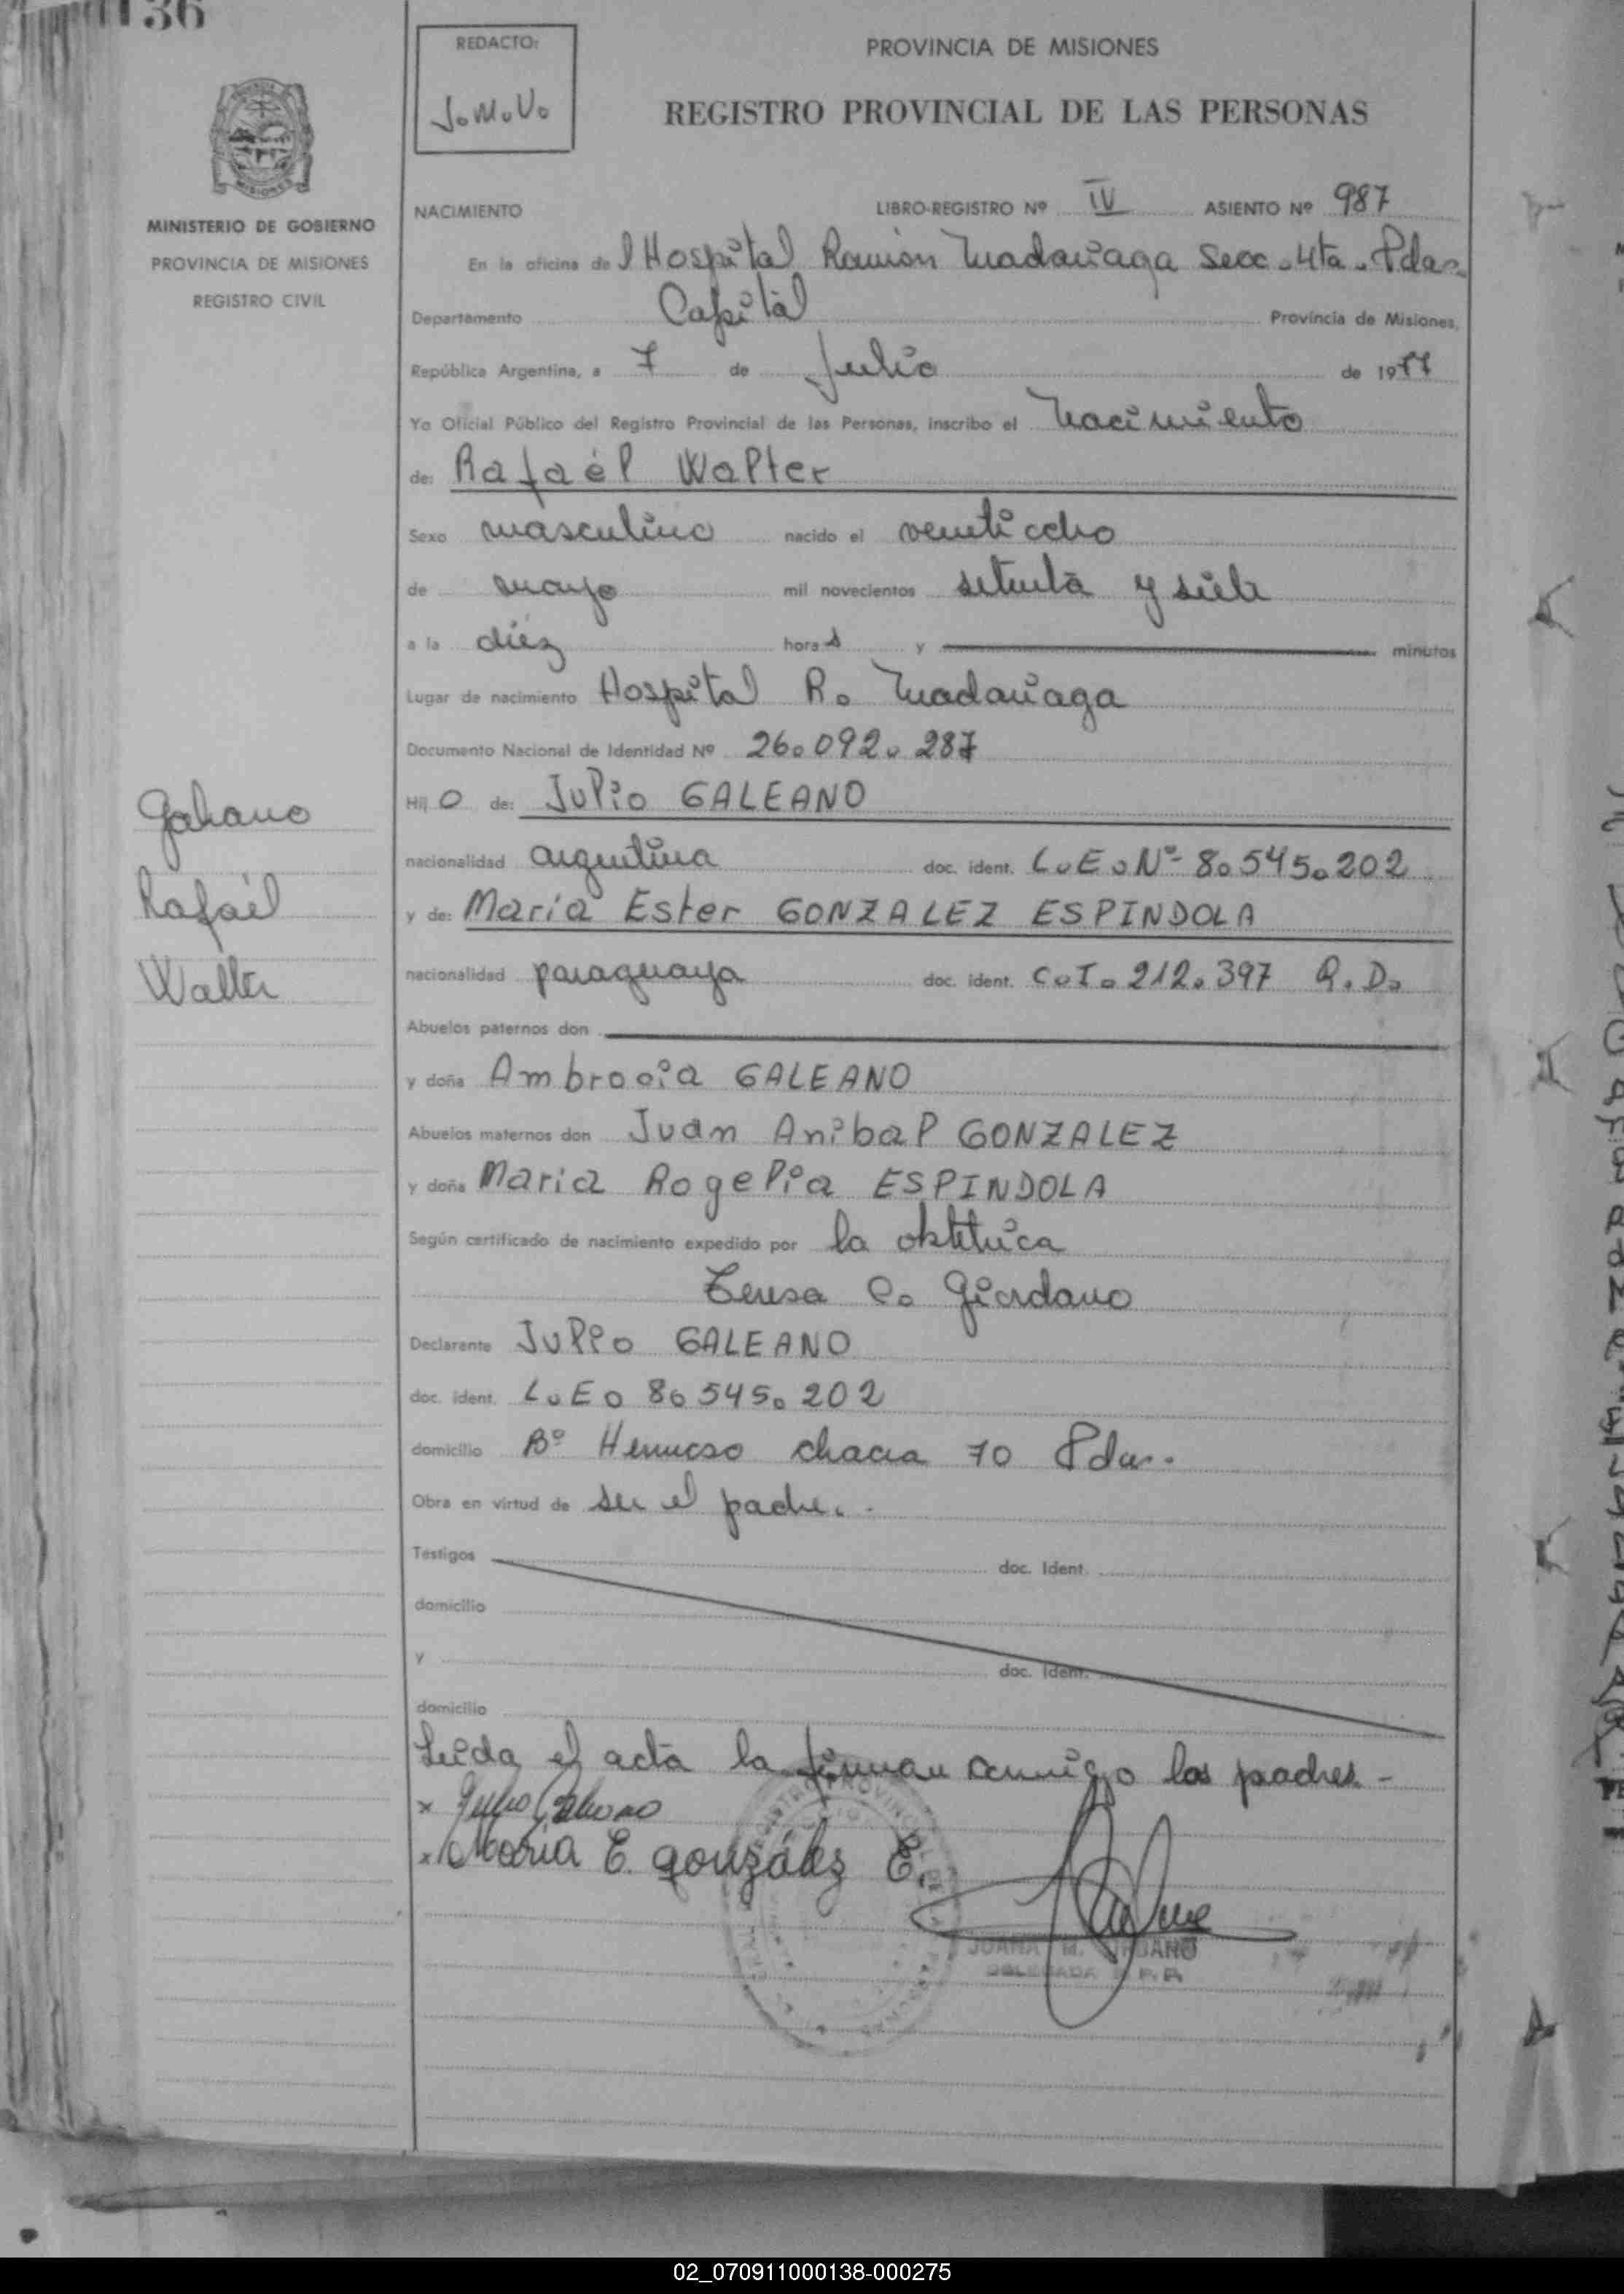 136
REDACTO:
J.M.V.
PROVINCIA DE MISIONES
REGISTRO PROVINCIAL DE LAS PERSONAS
MISIONES
MINISTERIO DE GOBIERNO
PROVINCIA DE MISIONES
REGISTRO CIVIL
NACIMIENTO LIBRO-REGISTRO Nº IV ASIENTO Nº 987
En la oficina del Hospital Ramón Madariaga Secc. 4ta. Pdas.
Departamento Capital Provincia de Misiones,
República Argentina, a 7 de Julio de 1977
Yo Oficial Público del Registro Provincial de las Personas, inscribo el Nacimiento
de: Rafaél Walter
Sexo masculino nacido el veintiocho
de mayo mil novecientos setenta y siete
a la diéz horas y minutos
Lugar de nacimiento Hospital R. Madariaga
Documento Nacional de Identidad Nº 26.092.287
Hijo de: Julio GALEANO
nacionalidad argentina doc. ident. L.E.Nº 8.545.202
y de: María Ester GONZALEZ ESPINDOLA
nacionalidad paraguaya doc. ident. C.I. 212.397 R.D.
Abuelos paternos don
y doña Ambrosia GALEANO
Abuelos maternos don Juan Anibal GONZALEZ
y doña Maria Rogelia ESPINDOLA
Según certificado de nacimiento expedido por la obstétrica
Teresa C. Giordano
Declarante Julio GALEANO
doc. ident. L.E. 8.545.202
domicilio Bº Hermoso chacra 70 Pdas.
Obra en virtud de ser el padre.
Testigos doc. Ident.
domicilio
y doc. Ident.
domicilio
Leída el acta la firman conmigo los padres.-
x Julio Galeano
x Maria E. gonzález E.
JUANA M. URBANO
DELEGADA R. P. P.
Galeano
Rafaél
Walter
02_070911000138-000275